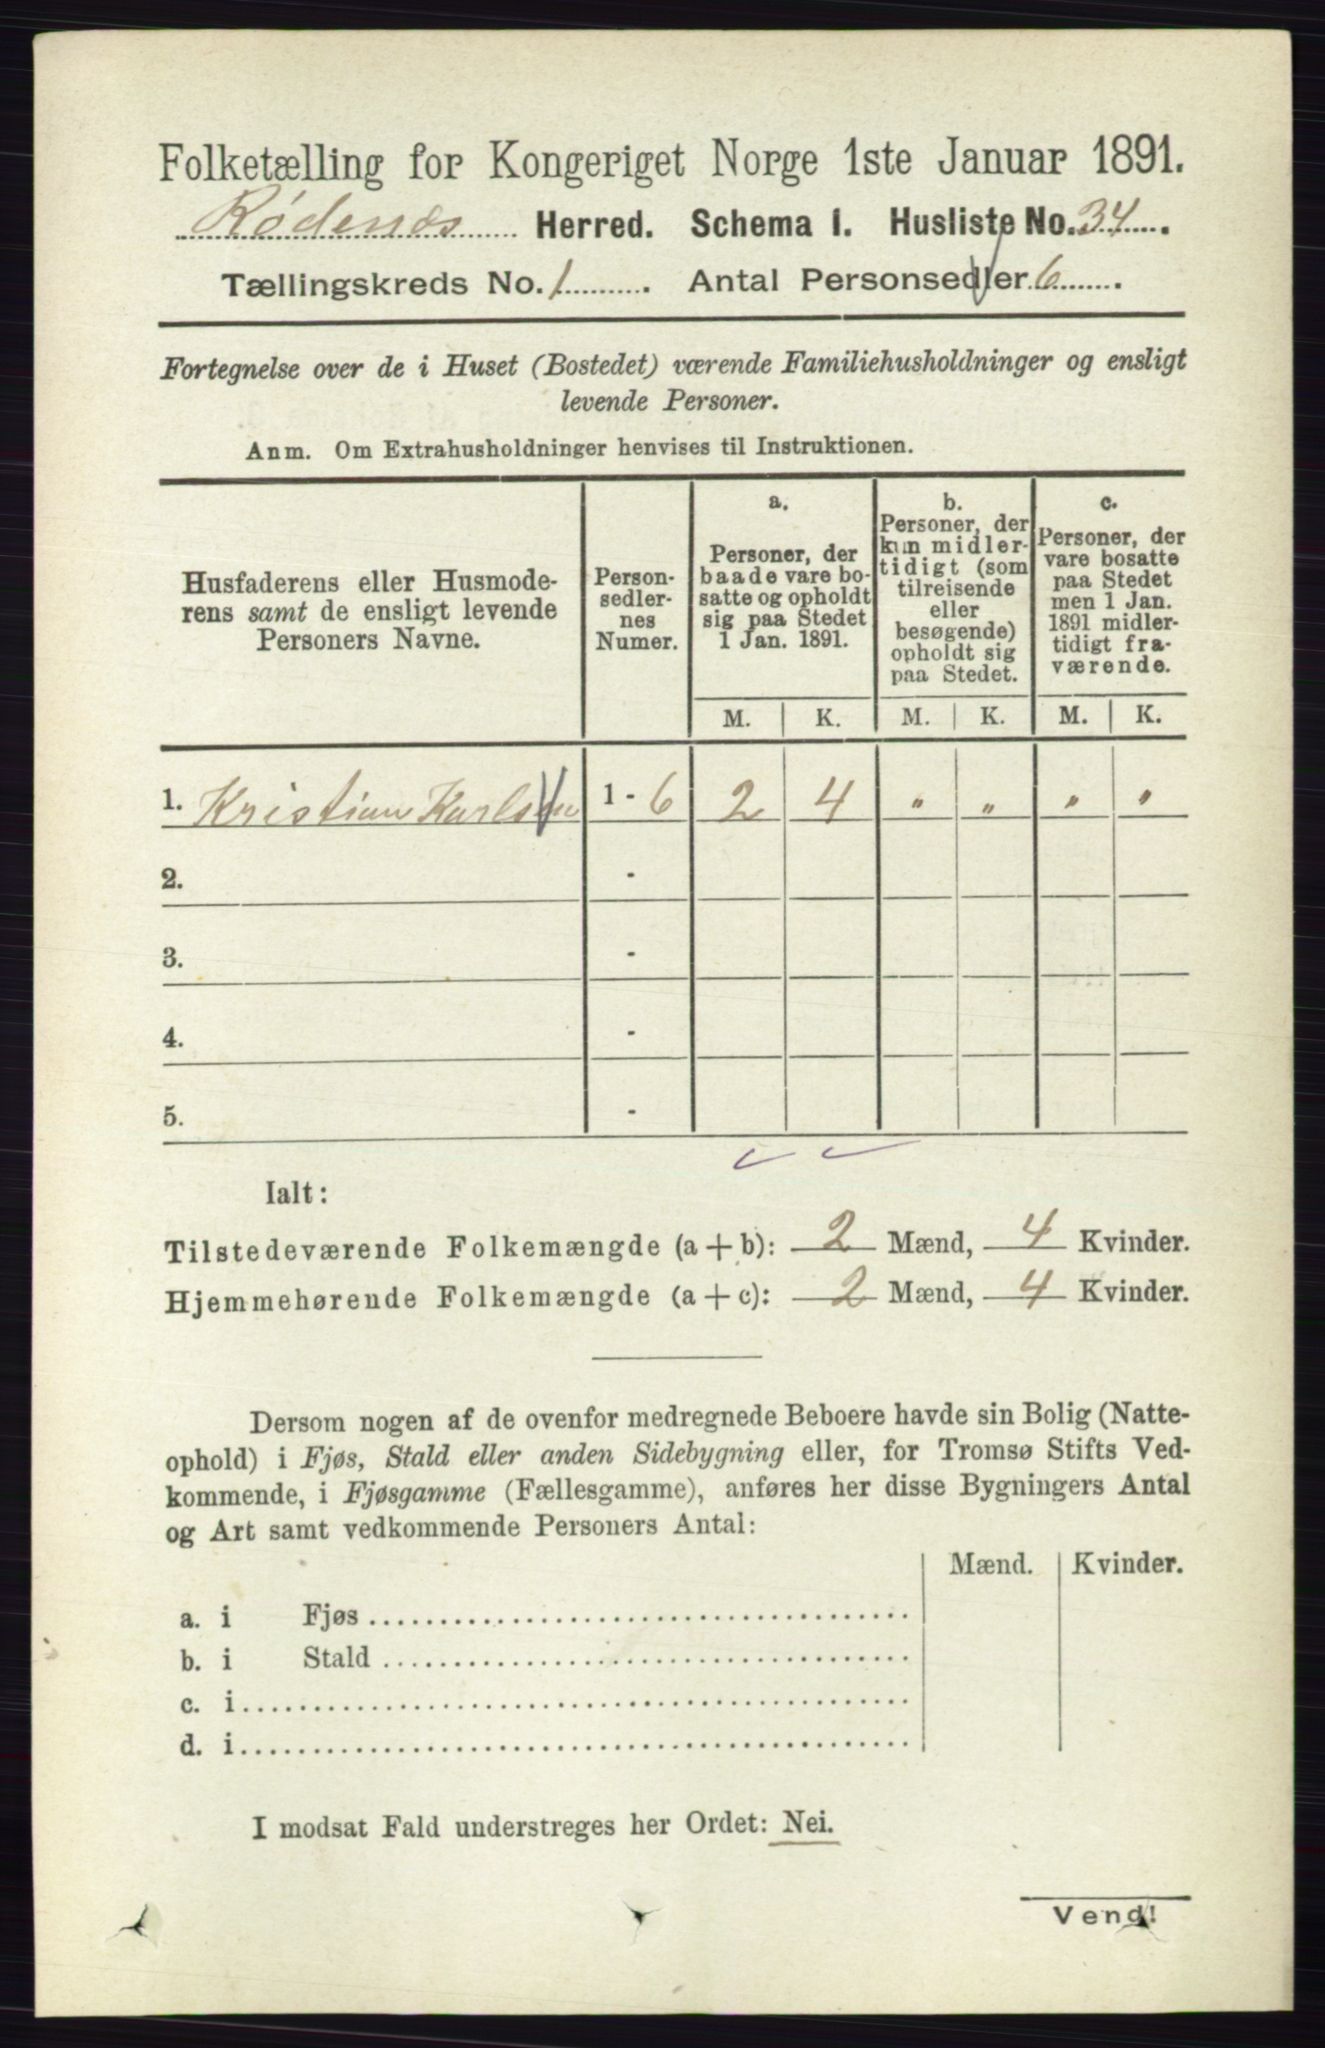 Folketælling for Kongeriget Norge 1ste Januar 1891.
Rødenæs Herred. Schema I. Husliste No. 34.
Tællingskreds No. 1. Antal Personsedler 6.
Fortegnelse over de i Huset (Bostedet) værende Familiehusholdninger og ensligt
levende Personer.
Anm. Om Extrahusholdninger henvises til Instruktionen.
Husfaderens eller Husmode-
rens samt de ensligt levende
Personers Navne.
Person-
sedler-
nes
Numer.
a.
Personer, der
baade vare bo-
satte og opholdt
sig paa Stedet
1 Jan. 1891.
b.
Personer, der
kun midler-
tidigt (som
tilreisende
eller
besøgende)
opholdt sig
paa Stedet.
c.
Personer, der
vare bosatte
paa Stedet
men 1 Jan.
1891 midler-
tidigt fra-
værende.
M. K. M. K. M. K.
1. Kristian Karlsen 1 - 6 2 4 " " " "
2. -
3. -
4. -
5. -
Ialt:
Tilstedeværende Folkemængde (a + b): 2 Mænd, 4 Kvinder.
Hjemmehørende Folkemængde (a + c): 2 Mænd, 4 Kvinder.
Dersom nogen af de ovenfor medregnede Beboere havde sin Bolig (Natte-
ophold) i Fjøs, Stald eller anden Sidebygning eller, for Tromsø Stifts Ved-
kommende, i Fjøsgamme (Fællesgamme), anføres her disse Bygningers Antal
og Art samt vedkommende Personers Antal:
Mænd. Kvinder.
a. i Fjøs
b. i Stald
c. i
d. i
I modsat Fald understreges her Ordet: Nei.
Vend!